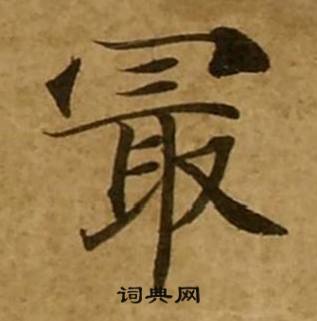 冣
词典网